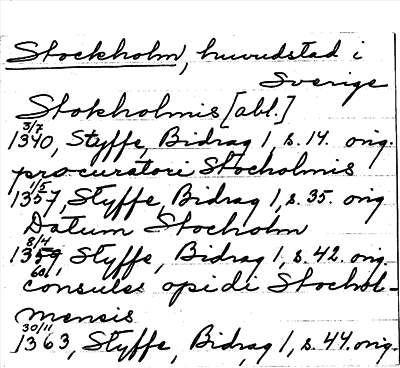 Stockholm, huvudstad i
Sverige
Stokholmis [abl.]
3/7
1340, Styffe, Bidrag 1, s. 14. orig.
procuratori Stocholmis
1/5
1357, Styffe, Bidrag 1, s. 35. orig
Datum Stocholm
8/4
1359, Styffe, Bidrag 1, s. 42. orig.
60
consules opidi Stochol-
mensis
30/11
1363, Styffe, Bidrag 1, s. 44. orig.